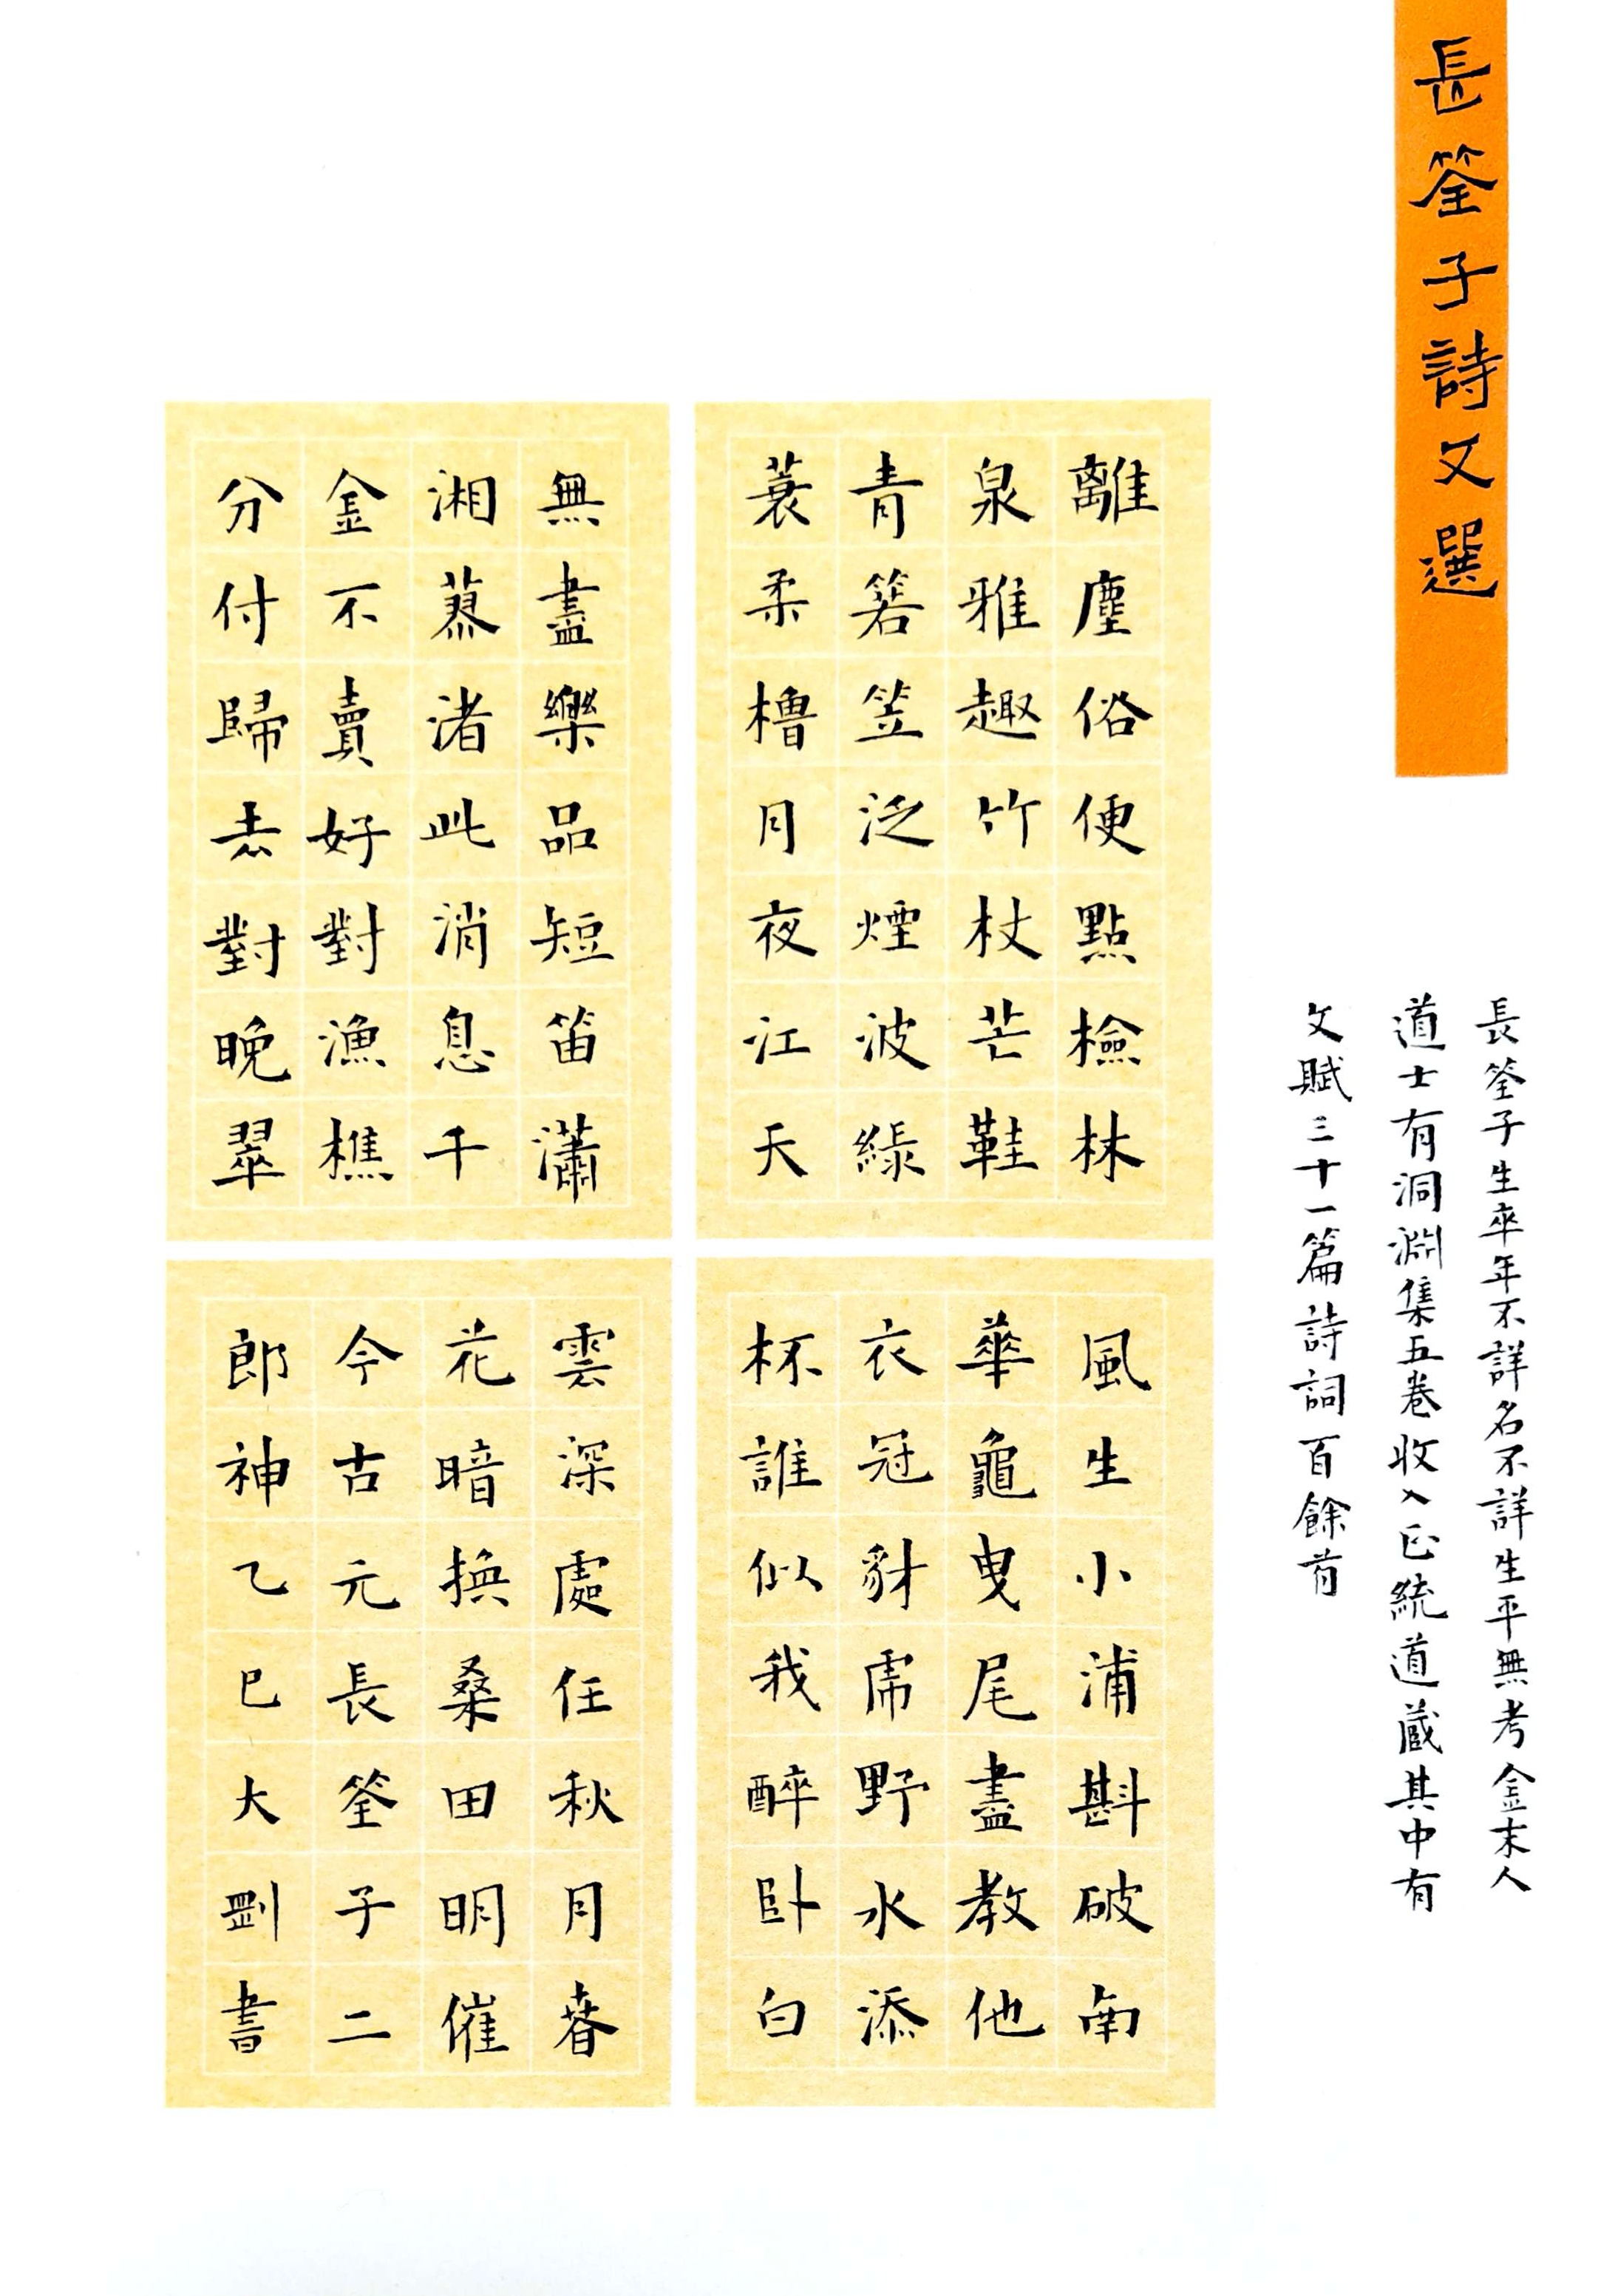 長筌子詩文選
長筌子生卒年不詳名不詳生平無考金末人
道士有洞淵集五卷收入正統道藏其中有
文賦三十一篇詩詞百餘首
離塵俗便點檢林
泉雅趣竹杖芒鞋
青箬笠泛煙波綠
蓑柔櫓月夜江天
無盡樂品短笛瀟
湘蓼渚此消息千
金不賣好對漁樵
分付歸去對晚翠
風生小浦斟破南
華龜曳尾盡教他
衣冠豺虎野水添
杯誰似我醉臥白
雲深處任秋月春
花暗換桑田明催
今古元長筌子二
郎神乙巳大剛書